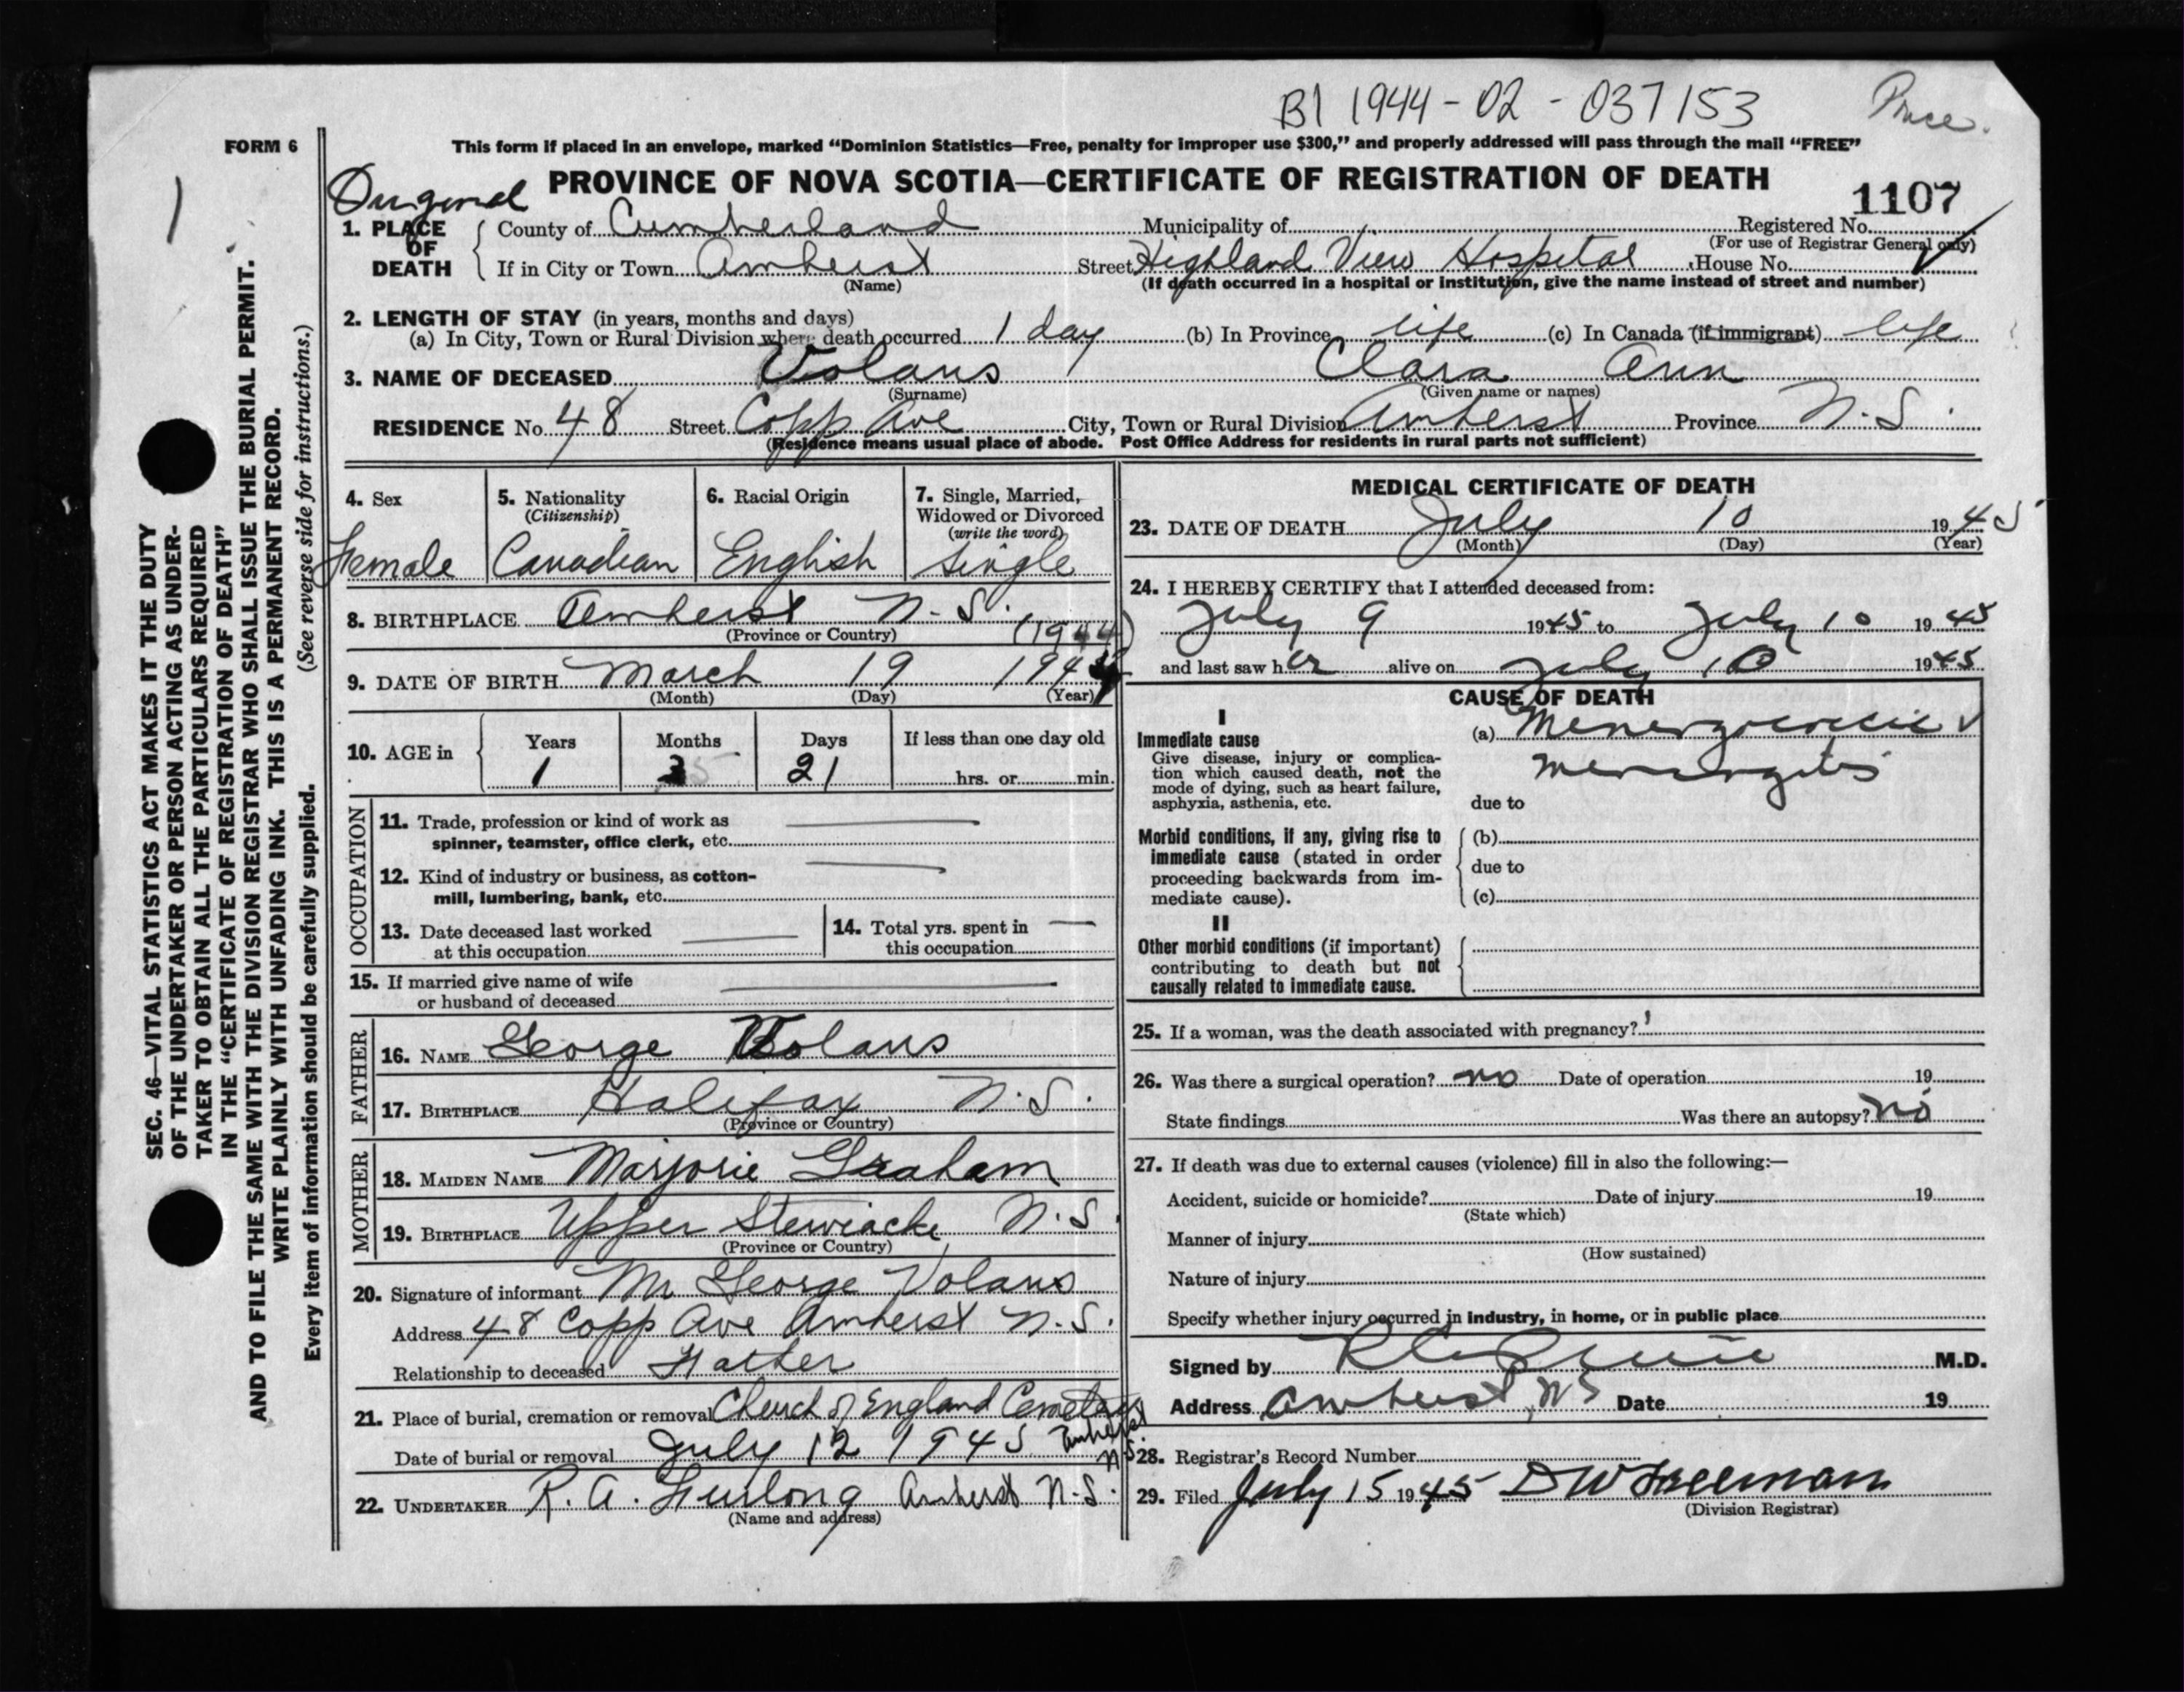 B1 1944-02-037153
FORM 6
This form if placed in an envelope, marked “Dominion Statistics—Free, penalty for improper use $300,” and properly addressed will pass through the mail “FREE”
Original
PROVINCE OF NOVA SCOTIA—CERTIFICATE OF REGISTRATION OF DEATH
1107
1. PLACE OF DEATH
County of Cumberland Municipality of Registered No.
(For use of Registrar General only)
If in City or Town Amherst Street Highland View Hospital House No.
(Name) (If death occurred in a hospital or institution, give the name instead of street and number)
2. LENGTH OF STAY (in years, months and days)
(a) In City, Town or Rural Division where death occurred 1 day (b) In Province life (c) In Canada (if immigrant) life
3. NAME OF DECEASED Volans Clara Ann
(Surname) (Given name or names)
RESIDENCE No. 48 Street Copp Ave City, Town or Rural Division Amherst Province N.S.
(Residence means usual place of abode. Post Office Address for residents in rural parts not sufficient)
4. Sex
Female
5. Nationality
(Citizenship)
Canadian
6. Racial Origin
English
7. Single, Married,
Widowed or Divorced
(write the word)
Single
8. BIRTHPLACE Amherst N.S.
(Province or Country) (1944)
9. DATE OF BIRTH March 19 1944
(Month) (Day) (Year)
10. AGE in
Years Months Days If less than one day old
1 21 hrs. or min.
OCCUPATION
11. Trade, profession or kind of work as
spinner, teamster, office clerk, etc.
12. Kind of industry or business, as cotton-
mill, lumbering, bank, etc.
13. Date deceased last worked
at this occupation
14. Total yrs. spent in
this occupation
15. If married give name of wife
or husband of deceased
FATHER
16. NAME George Volans
17. BIRTHPLACE Halifax N.S.
(Province or Country)
MOTHER
18. MAIDEN NAME Marjorie Graham
19. BIRTHPLACE Upper Stewiacke N.S.
(Province or Country)
20. Signature of informant Mr George Volans
Address 48 Copp Ave Amherst N.S.
Relationship to deceased Father
21. Place of burial, cremation or removal Church of England Cemetery
Amherst N.S.
Date of burial or removal July 12 1945
22. UNDERTAKER R. A. Furlong Amherst N.S.
(Name and address)
MEDICAL CERTIFICATE OF DEATH
23. DATE OF DEATH July 10 1945
(Month) (Day) (Year)
24. I HEREBY CERTIFY that I attended deceased from:
July 9 1945 to July 10 1945
and last saw her alive on July 10 1945
CAUSE OF DEATH
I
Immediate cause
Give disease, injury or complica-
tion which caused death, not the
mode of dying, such as heart failure,
asphyxia, asthenia, etc.
(a) Meningococcic
meningitis
due to
Morbid conditions, if any, giving rise to
immediate cause (stated in order
proceeding backwards from im-
mediate cause).
(b)
due to
(c)
II
Other morbid conditions (if important)
contributing to death but not
causally related to immediate cause.
25. If a woman, was the death associated with pregnancy?
26. Was there a surgical operation? no Date of operation 19
State findings Was there an autopsy? no
27. If death was due to external causes (violence) fill in also the following:—
Accident, suicide or homicide? Date of injury 19
(State which)
Manner of injury
(How sustained)
Nature of injury
Specify whether injury occurred in industry, in home, or in public place
Signed by M.D.
Address Amherst, NS Date 19
28. Registrar's Record Number
29. Filed July 15 1945 D W Freeman
(Division Registrar)
SEC. 46—VITAL STATISTICS ACT MAKES IT THE DUTY
OF THE UNDERTAKER OR PERSON ACTING AS UNDER-
TAKER TO OBTAIN ALL THE PARTICULARS REQUIRED
IN THE “CERTIFICATE OF REGISTRATION OF DEATH”
AND TO FILE THE SAME WITH THE DIVISION REGISTRAR WHO SHALL ISSUE THE BURIAL PERMIT.
WRITE PLAINLY WITH UNFADING INK. THIS IS A PERMANENT RECORD.
Every item of information should be carefully supplied. (See reverse side for instructions.)